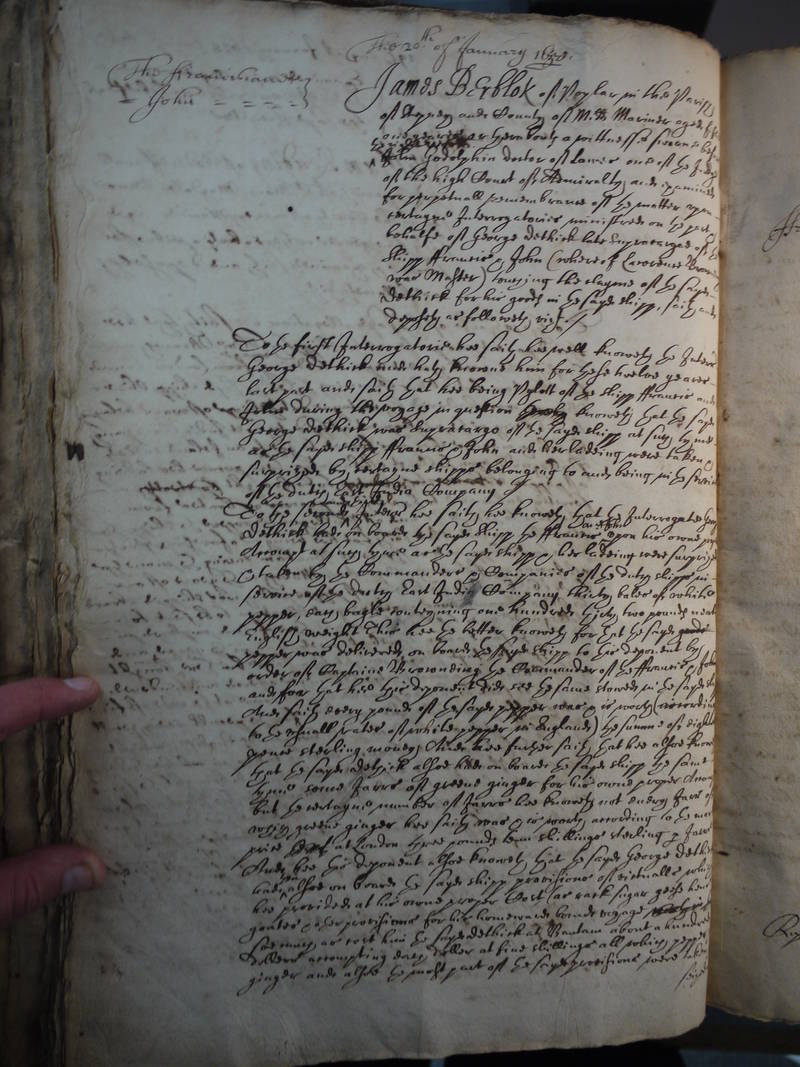 The 20th of January 1658.
The ffrancis and
John
James Derblok of Poplar in the Parish
of Stepney and County of Midd Mariner aged
yeares or thereabouts a wittnesse sworne before
John Godolphin doctor of Lawes one of the Judges
of the high Court of Admiralty and examined
for perpetuall remembrance of the matter upon
certayne Interrogatories ministred on the part
behalfe of George dethick late Supracargo of the
shipp ffrancis & John (whereof Lawrence
was Master) touching the clayme of the sayd
dethick for his goods in the sayd shipp, saith and
deposeth as followeth vizt./
To the first Interrogatorie hee saith hee well knoweth the Interrate
George dethick and hath knowne him for these twelve yeares
last past and saith that hee being Pylott of the shipp ffrancis and
John during the voyage in question knoweth that the sayd
George dethick was Supracargo of the sayd shipp at such tyme
as the sayd shipp ffrancis & John and her ladeing were taken &
surprized by certayne shipps belonging to and being in the service
of the dutch East India Company
To the second Interrie hee saith hee knoweth that the Interrogate George
dethick had on board the sayd shipp the ffrancis upon his owne proper
Accompt at such tyme as the sayd shipp & her ladeing were surprized
& taken by the Commanders & Companies of the dutch shipps in
service of the dutch East India Company thirty bales of white
pepper, each bagle conteyning one hundred thirty two pounds neat
English weight This hee the better knoweth for that the sayd
pepper was delivered on board the sayd shipp to this deponent by
order of Captaine Browning the Commander of the ffrancis & John
and for that hee this deponent did see the same stowed in the sayd shipp
And saith every pound of the sayd pepper was & is worth (according
to the small rates of white pepper in England) the summe of eight
pence sterling money And hee further saith that hee alsoe knoweth
that the sayd dethick alsoe had on board the sayd shipp the same
tyme some Jarrs of greene ginger for his owne proper Accompt
but the certayne number of Jarrs hee knoweth not every Jarr of
which greene ginger hee saith was & is worth according to the
price at London three pounds tenn shillings sterling p Jarr
And hee this deponent alsoe knoweth that the sayd George dethick
had alsoe on board the sayd shipp provisions of victualls which
hee provided at his owne proper Cost (as rack sugar geese hens
goates & other provisions for his homewards bound voyage
soe much as cost him the sayd dethick at Bantam about a hundred
dollers accompting each doller at five shillings all which pepper
ginger and alsoe the most part of the sayd provisions were taken